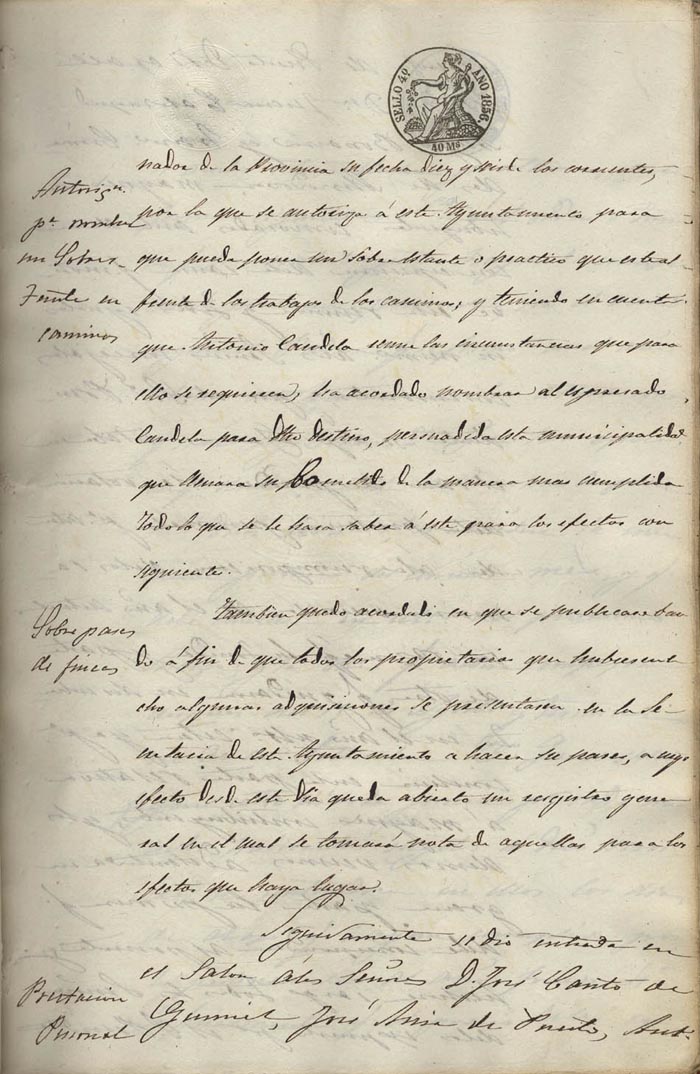 SELLO 4º AÑO 1856.
40 Ms
nador de la Provincia su fecha diez y seis de los corrientes,
por la que se autoriza á este Ayuntamiento para
que pueda poner un sobre estante o practico que este al
frente de los trabajos de los caminos; y teniendo en cuenta
que Antonio Candela reune las circunstancias que para
ello se requieren, ha acordado nombrar al espresado
Candela para dho destino, persuadida esta municipalidad
que llenara su Cometido de la manera mas cumplida
Todo lo que se le hara saber á este para los efectos con
siguiente.
Autorizn.
pa. nombrar
un Sobres-
tante en
caminos
Tambien quedo acordado en que se publicase ban
do á fin de que todos los propietarios que hubiesen e
cho algunas adquisiciones se presentasen en la Se-
cretaria de este Ayuntamiento a hacer su pases, a cuyo
efecto desde este dia queda abierto un registro gene
ral en el cual se tomará nota de aquellas para los
efectos que haya lugar.
Sobre pases
de fincas
Seguidamente se dio entrada en
el Salon á los Señores D. José Cantó de
Gumiel, José de Puerto, Ant-
Prestacion
Personal